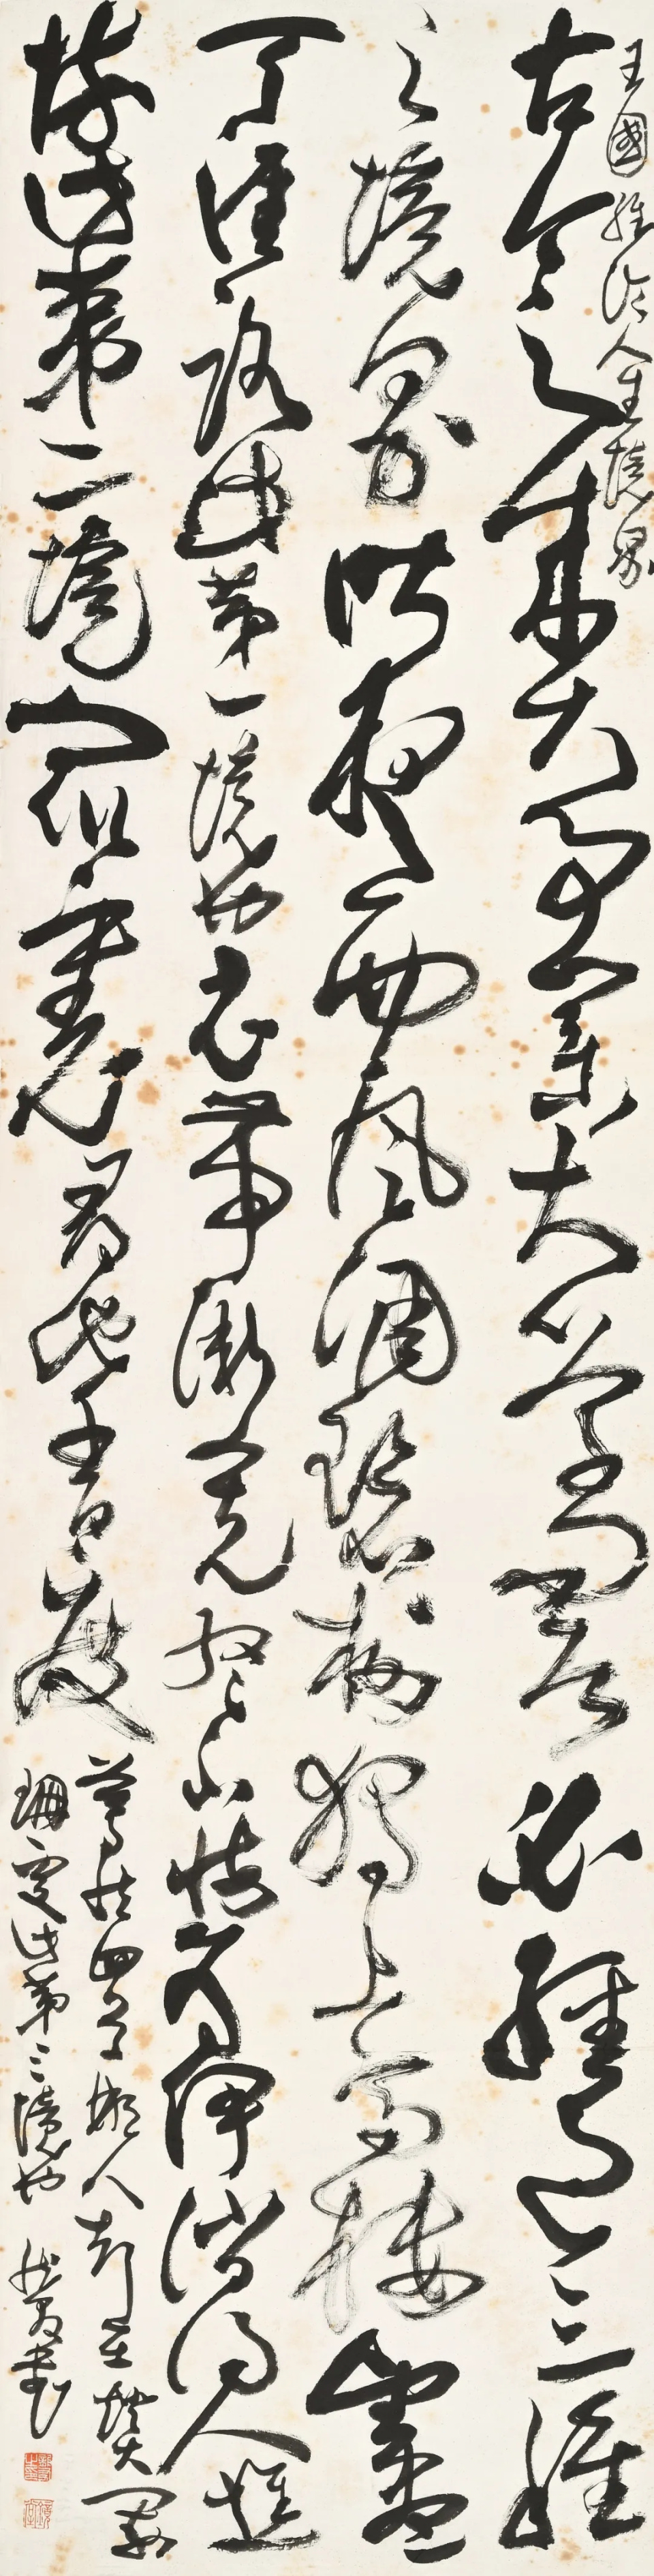 王國維論人生境界
古今之成大事業大學問者必經過三種
之境界昨夜西風凋碧樹獨上高樓盡
天涯路此第一境也衣帶漸寬終不悔為伊消得人憔
悴此第二境眾裏尋他千百度
驀然回首那人卻在燈火闌
珊處此第三境也 書